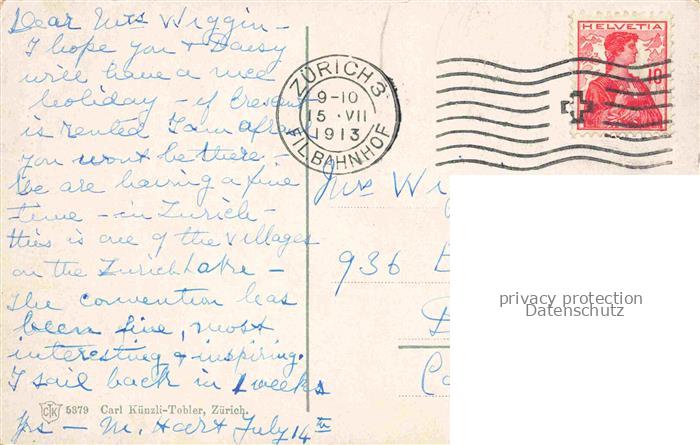 Dear Mrs Wiggin –
I hope you + Daisy
will have a nice
holiday – if Crescent
is rented I am afraid
you wont be there. –
We are having a fine
time – in Zurich –
this is one of the villages
on the Zurich Lake –
The convention has
been fine, most
interesting & inspiring.
I sail back in 2 weeks
Yrs – M. Hart July 14th
5379 Carl Künzli-Tobler, Zürich.
CTK
ZÜRICH 3
9-10
15 · VII
1913
FIL. BAHNHOF
HELVETIA
10
Mrs Wig
936
privacy protection
Datenschutz